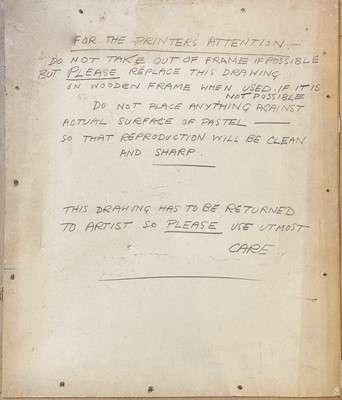 FOR THE PRINTER'S ATTENTION —
DO NOT TAKE OUT OF FRAME IF POSSIBLE
BUT PLEASE REPLACE THIS DRAWING
ON WOODEN FRAME WHEN USED. IF IT IS
NOT POSSIBLE
DO NOT PLACE ANYTHING AGAINST
ACTUAL SURFACE OF PASTEL —
SO THAT REPRODUCTION WILL BE CLEAN
AND SHARP.
THIS DRAWING HAS TO BE RETURNED
TO ARTIST SO PLEASE USE UTMOST
CARE